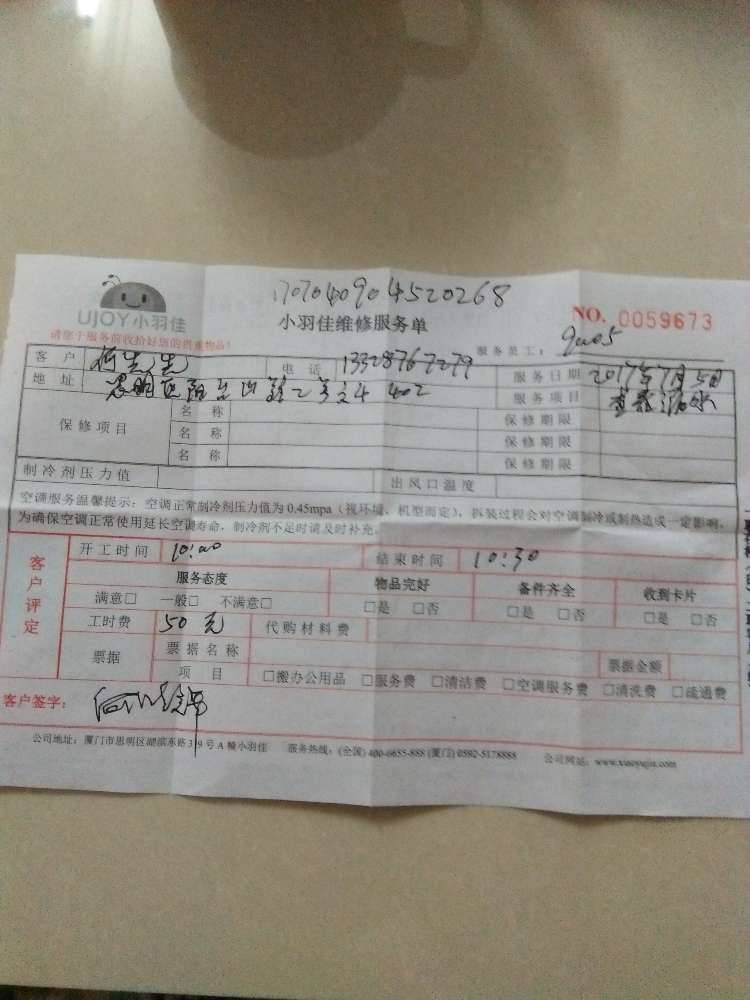 1707040904520268
UJOY小羽佳
小羽佳维修服务单
NO. 0059673
请您于服务前收拾好您的贵重物品!
服务员工: 9005
客户 何先生 电话 13328767279 服务日期 2017年7月5日
地址 思明区 402 服务项目 查漏水
保修项目 名称 保修期限
名称 保修期限
名称 保修期限
制冷剂压力值 出风口温度
空调服务温馨提示:空调正常制冷剂压力值为0.45mpa(视环境、机型而定),拆装过程会对空调制冷或制热造成一定影响,
为确保空调正常使用延长空调寿命,制冷剂不足时请及时补充。
客户评定
开工时间 10:00 结束时间 10:30
服务态度 物品完好 备件齐全 收到卡片
满意□ 一般□ 不满意□ □是 □否 □是 □否 □是 □否
工时费 50元 代购材料费
票据 票据名称 票据金额
项目 □搬办公用品 □服务费 □清洁费 □空调服务费 □清洗费 □疏通费
客户签字:
公司地址:厦门市思明区湖滨东路319号A幢小羽佳 服务热线:(全国)400-6655-888 (厦门)0592-5178888 公司网站:www.xiaoyujia.com